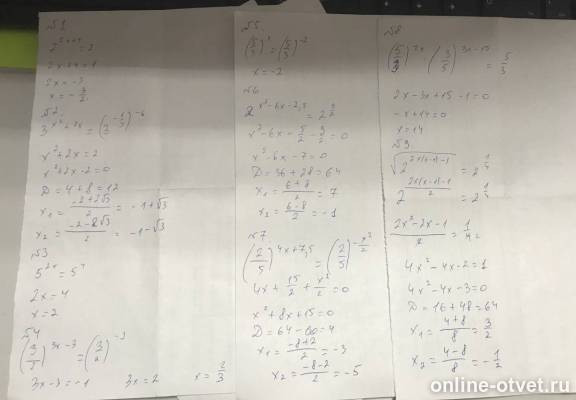 №1
2x+4=1
2x=-3
x=-3/2
№2
3^(x²+2x)=(3^(-1/3))^(-6)
x²+2x=2
x²+2x-2=0
D=4+8=12
x₁=(-2+2√3)/2=-1+√3
x₂=(-2-2√3)/2=-1-√3
№3
5^(2x)=5⁴
2x=4
x=2
3x-3=-1 3x=2 x=2/3
№5
x=-2
№6
2^(x²-6x-2,5)=2^(9/2)
x²-6x-5/2-9/2=0
x²-6x-7=0
D=36+28=64
x₁=(6+8)/2=7
x₂=(6-8)/2=-1
№7
(2/5)^(4x+7,5)=(2/5)^(-x²/2)
4x+15/2+x²/2=0
x²+8x+15=0
D=64-60=4
x₁=(-8+2)/2=-3
x₂=(-8-2)/2=-5
№8
2x-3x+15-1=0
-x+14=0
x=14
№9
√(2^(2x(x-1)-1))=2^(1/4)
2^((2x(x-1)-1)/2)=2^(1/4)
(2x²-2x-1)/2=1/4
4x²-4x-2=1
4x²-4x-3=0
D=16+48=64
x₁=(4+8)/8=3/2
x₂=(4-8)/8=-1/2
online-otvet.ru